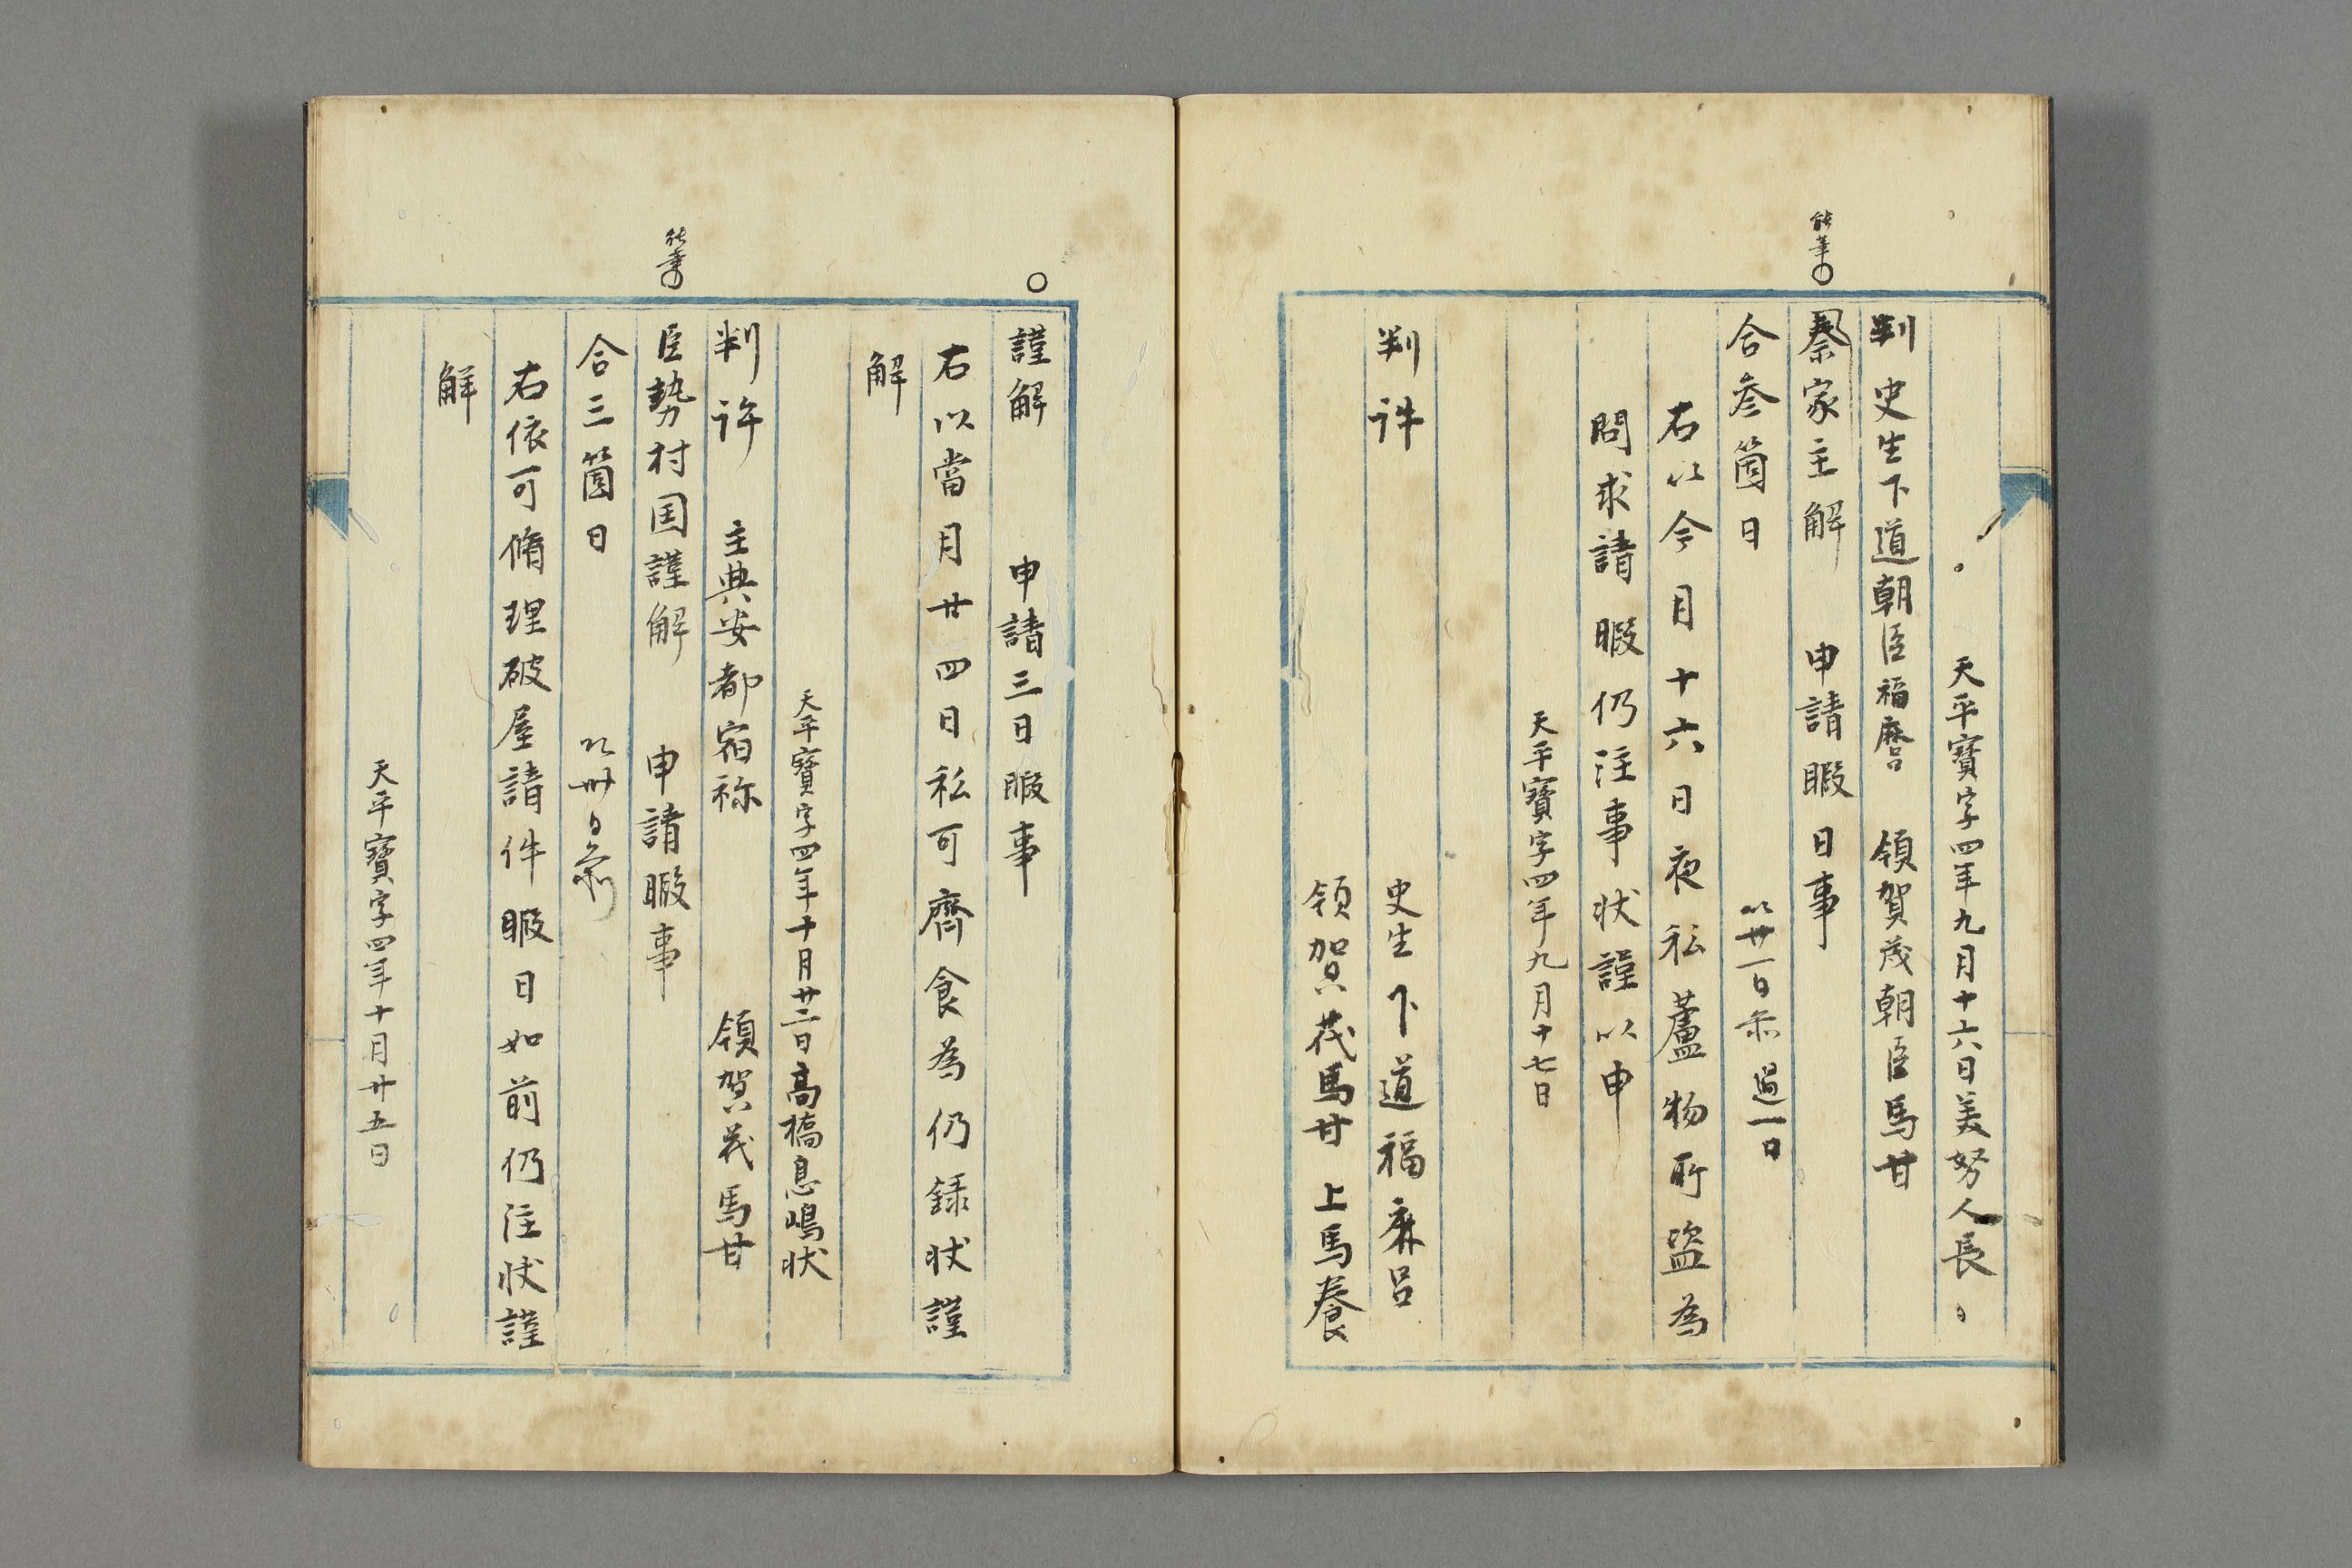 天平寳字四年九月十六日美努人長
判 史生下道朝臣福麿 領賀茂朝臣馬甘
能筆〇
秦家主解 申請暇日事
合叄箇日 以廿一日参過一日
右以今月十六日夜私蘆物所盗為
問求請暇仍注事状謹以申
天平寳字四年九月十七日
判許 史生下道福麻呂
領賀茂馬甘 上馬養
〇
謹解 申請三日暇事
右以當月廿四日私可齊食為仍録状謹
解
天平寳字四年十月廿二日高橋息嶋状
判許 主典安都宿祢 領賀茂馬甘
能筆〇
臣勢村国謹解 申請暇事
合三箇日 以卅日参
右依可脩理破屋請件暇日如前仍注状謹
解
天平寳字四年十月廿五日